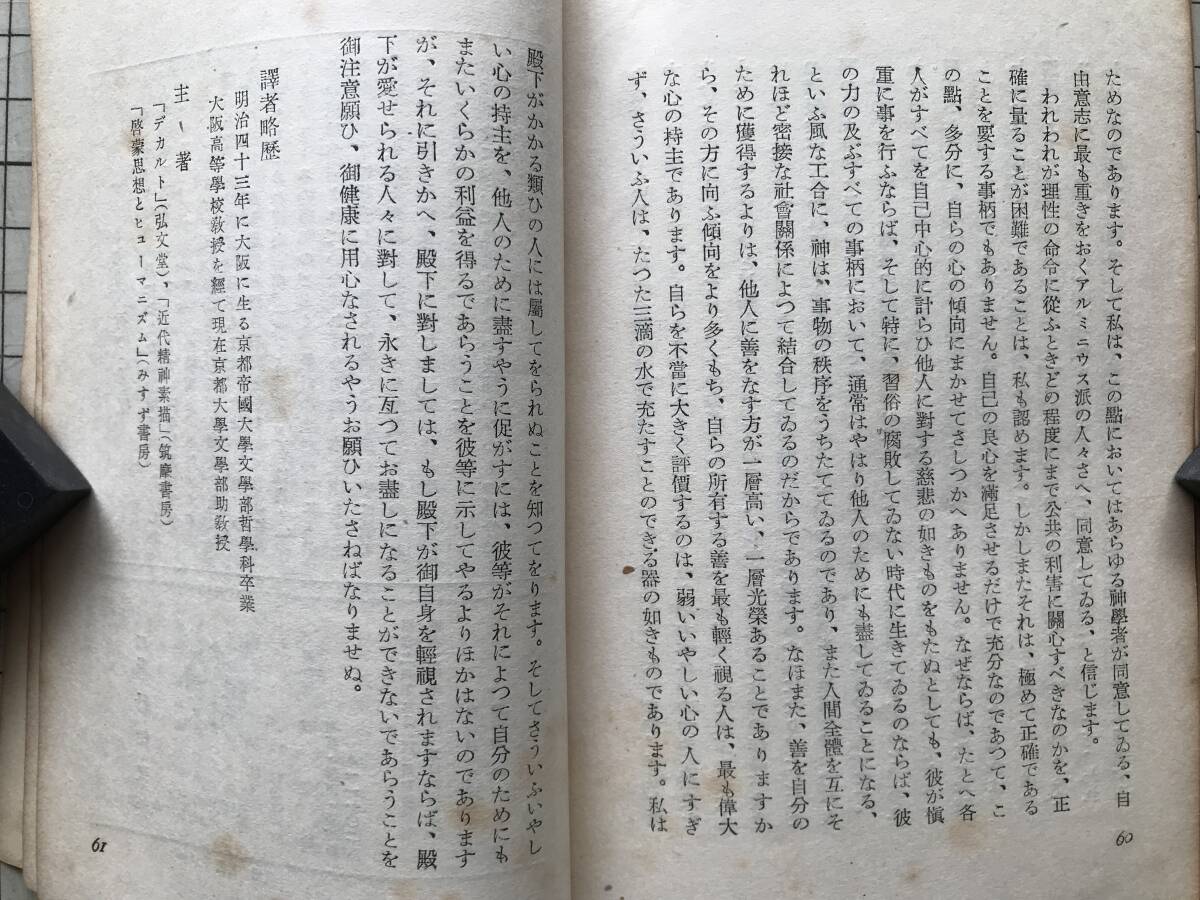 ためなのであります。そして私は、この點においてはあらゆる神學者が同意してゐる、自
由意志に最も重きをおくアルミニウス派の人々さへ、同意してゐる、と信じます。
われわれが理性の命令に從ふときどの程度にまで公共の利害に關心すべきなのかを、正
確に量ることが困難であることは、私も認めます。しかしまたそれは、極めて正確である
ことを要する事柄でもありません。自己の良心を滿足させるだけで充分なのであつて、こ
の點、多分に、自らの心の傾向にまかせてさしつかへありません。なぜならば、たとへ各
人がすべてを自己中心的に計らひ他人に對する慈悲の如きものをもたぬとしても、彼が愼
重に事を行ふならば、そして特に、習俗の腐敗してゐない時代に生きてゐるのならば、彼
の力の及ぶすべての事柄において、通常はやはり他人のためにも盡してゐることになる、
といふ風な工合に、神は、事物の秩序をうちたててゐるのであり、また人間全體を互にそ
れほど密接な社會關係によつて結合してゐるのだからであります。なほまた、善を自分の
ために獲得するよりは、他人に善をなす方が一層高い、一層光榮あることでありますか
ら、その方に向ふ傾向をより多くもち、自らの所有する善を最も輕く視る人は、最も偉大
な心の持主であります。自らを不當に大きく評價するのは、弱いいやしい心の人にすぎ
ず、さういふ人は、たつた三滴の水で充たすことのできる器の如きものであります。私は
60
殿下がかかる類ひの人には屬してをられぬことを知つてをります。そしてさういふいやし
い心の持主を、他人のために盡すやうに促がすには、彼等がそれによつて自分のためにも
またいくらかの利益を得るであらうことを彼等に示してやるよりほかはないのであります
が、それに引きかへ、殿下に對しましては、もし殿下が御自身を輕視されますならば、殿
下が愛せられる人々に對して、永きに亙つてお盡しになることができないであらうことを
御注意願ひ、御健康に用心なされるやうお願ひいたさねばなりませぬ。
譯者略歷
明治四十三年に大阪に生る京都帝國大學文學部哲學科卒業
大阪高等學校敎授を經て現在京都大學文學部助敎授
主著
「デカルト」(弘文堂)、「近代精神素描」(筑摩書房)
「啓蒙思想とヒューマニズム」(みすず書房)
61